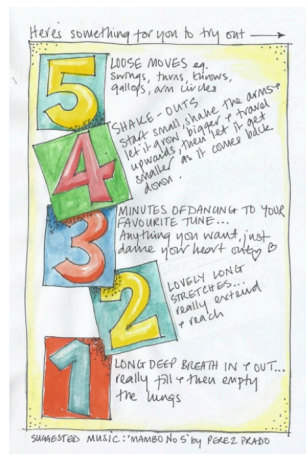 Here's something for you to try out →
5
LOOSE MOVES eg.
swings, turns, throws,
gallops, arm circles
4
SHAKE-OUTS
Start small, shake the arms +
let it grow bigger + travel
upwards, then let it get
smaller as it comes back
down.
3
MINUTES OF DANCING TO YOUR
FAVOURITE TUNE...
Anything you want, just
dance your heart out
2
LOVELY LONG
STRETCHES...
really extend
+ reach
1
LONG DEEP BREATH IN + OUT...
really fill + then empty
the lungs
SUGGESTED MUSIC: 'MAMBO NO 5' by PEREZ PRADO